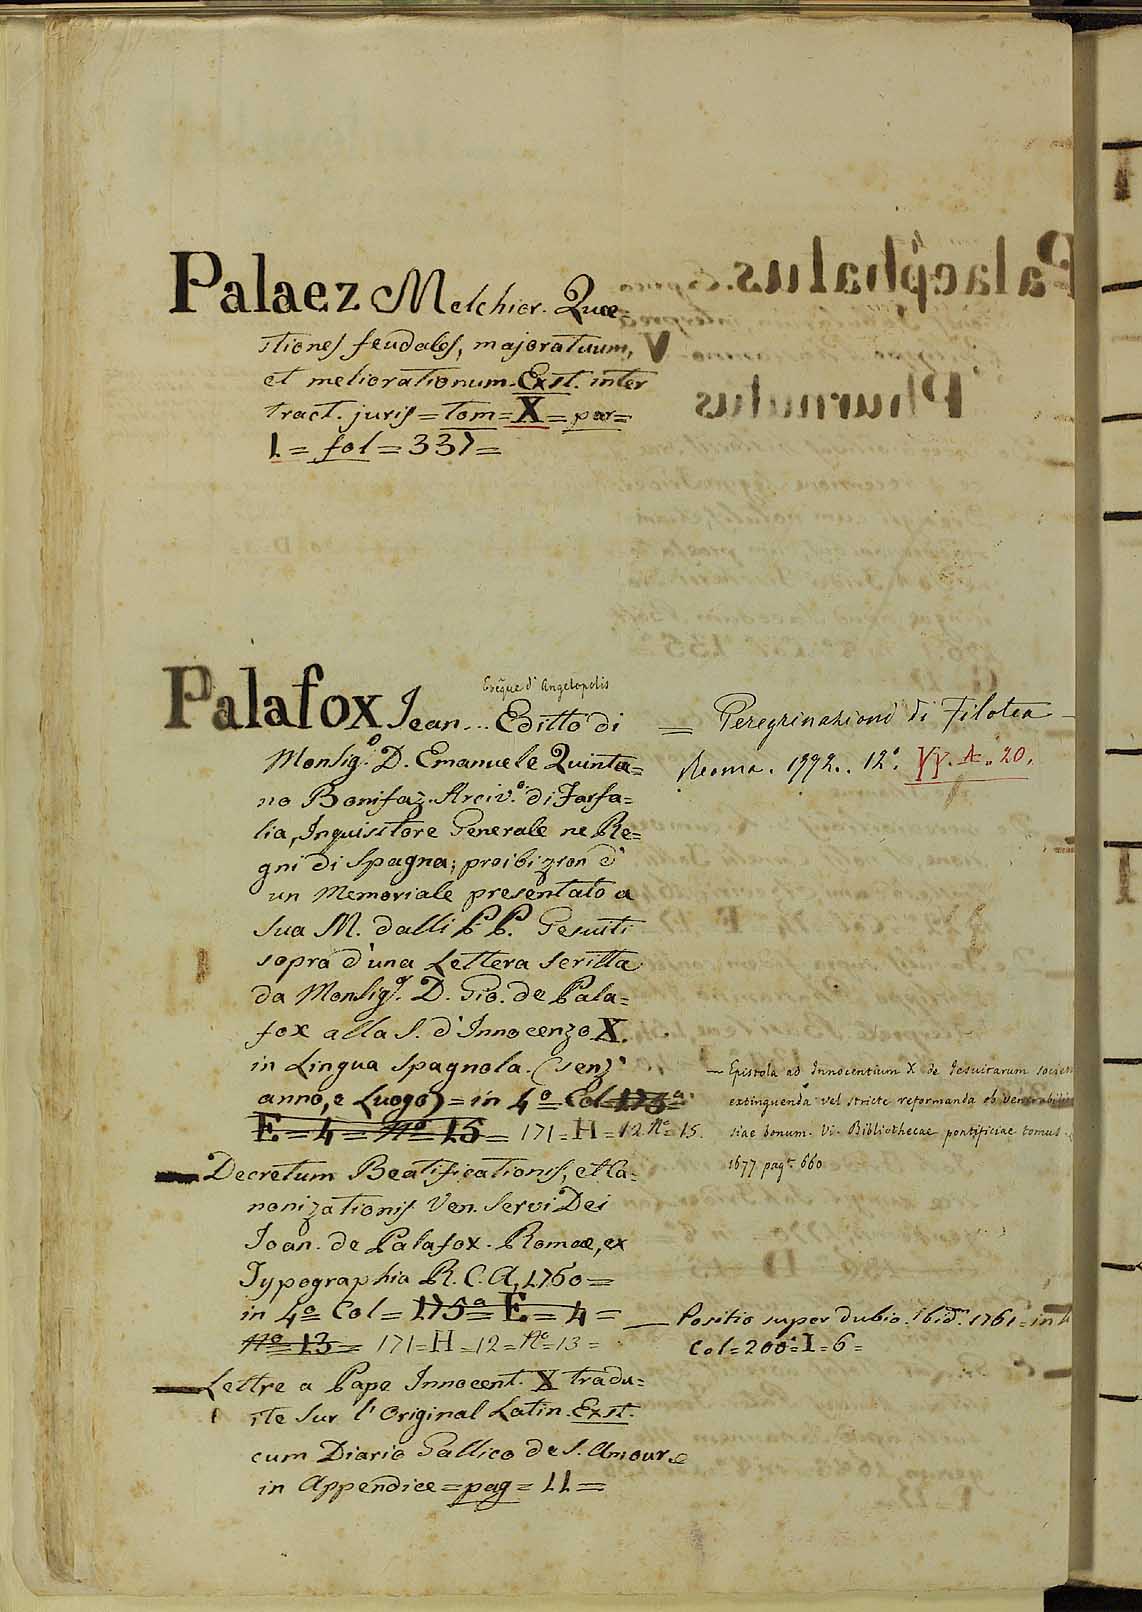 Palaez Melchior. Quæ=
stiones feudales, majoratuum,
et meliorationum. Exst. inter
tract. juris = tom = X = par =
1 = fol = 337 =
Evêque d'Angelopolis
Palafox Jean... Editto di
Monsig.r D. Emanuele Quinta=
no Bonifaz. Arciv.o di Farsa=
lia, Inquisitore Generale ne Re=
gni di Spagna; proibizion d'
un Memoriale presentato a
Sua M. dalli PP. Gesuiti
sopra d'una Lettera scritta
da Monsig.r D. Gio. de Pala=
fox alla S. d'Innocenzo X.
in Lingua Spagnola. (senz'
anno, e Luogo) = in 4º Col 175ª
E = 4 = Nº 15 = 171 = H = 12 Nº = 15.
Decretum Beatificationis, et Ca=
nonizationis Ven. Servi Dei
Joan. de Palafox. Romæ, ex
Typographia R. C. A, 1760 =
in 4º Col = 175ª E = 4 =
Nº = 13 = 171 = H = 12 = Nº = 13 =
Lettre a Pape Innocent. X tradu=
ite sur l'Original Latin. Exst.
cum Diario Gallico de S. Amour
in Appendice = pag = 11 =
= Peregrinazioni di Filotea
Roma. 1772. 12º YY. A. 20.
— Epistola ad Innocentium X de Jesuitarum
extinguenda vel stricte reformanda ob
siae bonum. Vi. Bibliothecae pontificiae tomus
1677 pag. 660
— Positio super dubio. Ibid. 1761 = in 4
Col = 200 = I = 6 =